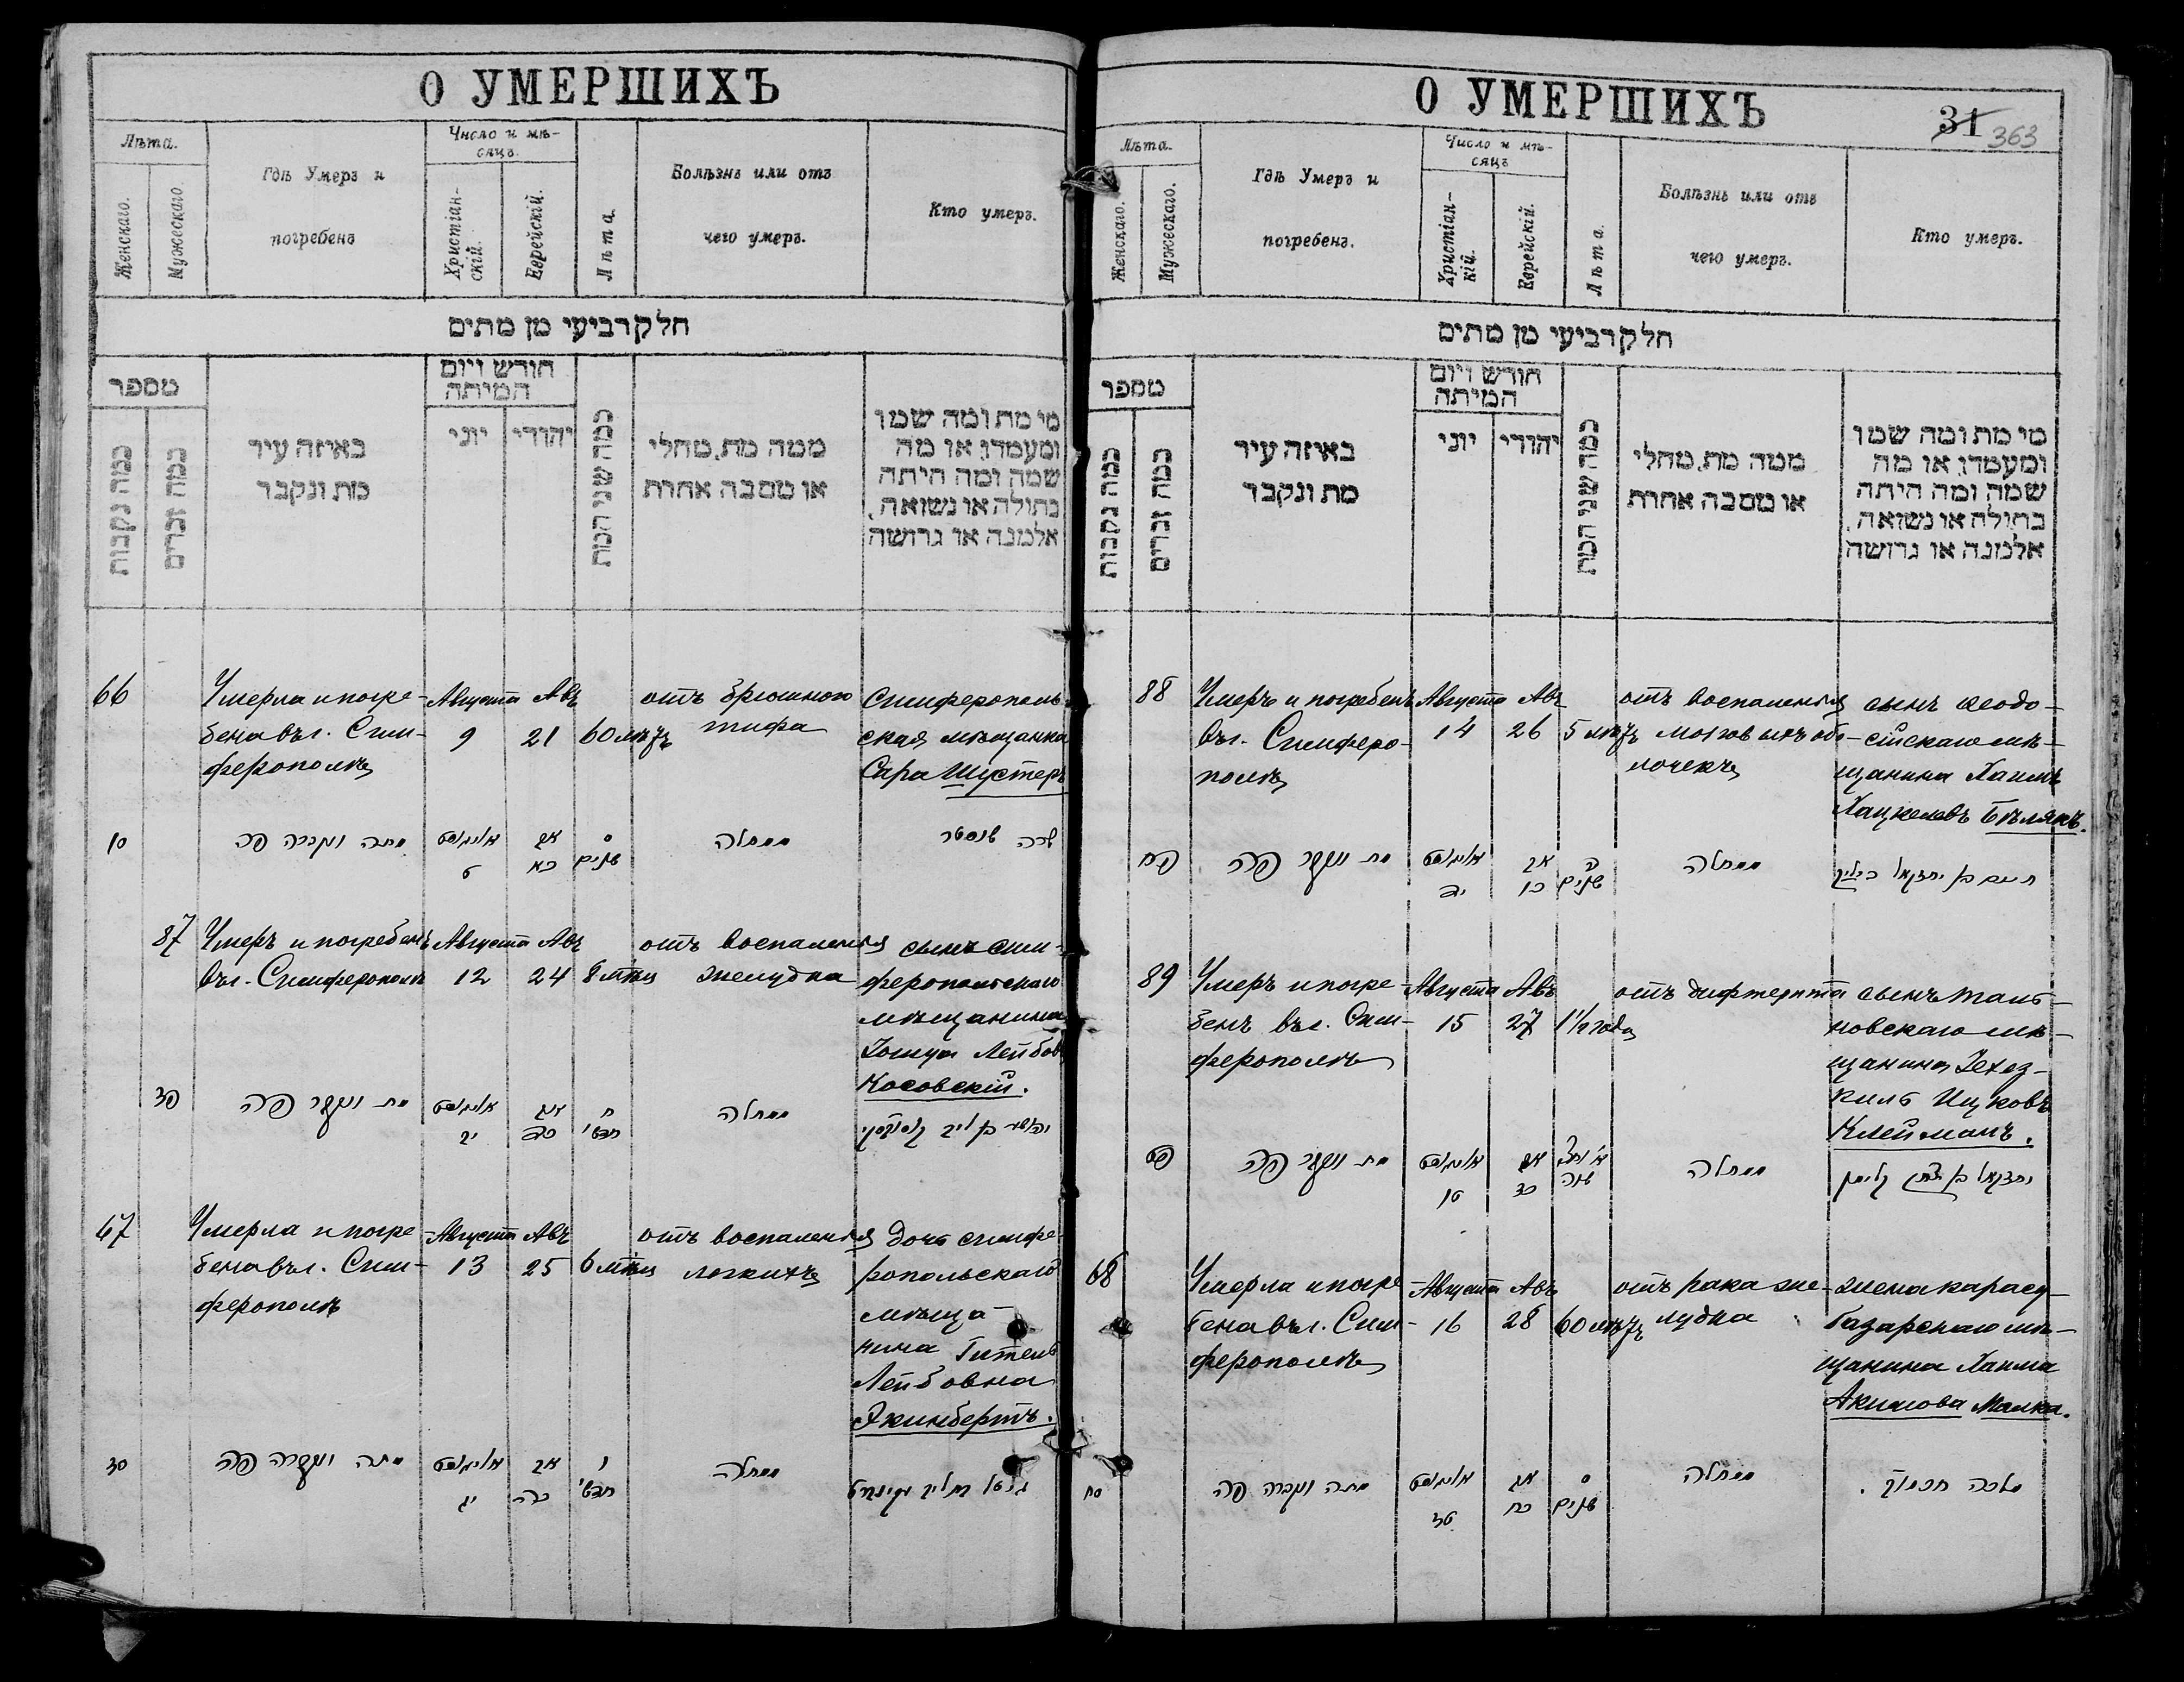 О УМЕРШИХЪ
Лѣта.
Женскаго.
Мужескаго.
Гдѣ Умеръ и
погребенъ
Число и мѣ-
сяцъ.
Христіан-
скій.
Еврейскій.
Лѣта.
Болѣзнь или отъ
чего умеръ.
Кто умеръ.
חלק רביעי מן מתים
מספר
כמה נקבות
כמה זכרים
באיזה עיר
מת ונקבר
חודש ויום
המיתה
יוני
יהודי
כמה שני המת
ממה מת, מחלי
או מסבה אחרת
מי מת ומה שמו
ומעמדו, או מה
שמה ומה היתה
בתולה או נשואה,
אלמנה או גרושה
66
Умерла и погре-
бена въ г. Сим-
ферополѣ
Августа
9
Авъ
21
60 лѣтъ
отъ брюшного
тифа
Симферополь-
ская мѣщанка
Сара Шустеръ
מתה ונקברה פה
אויגוסט
ט
אב
כא
ס
שנים
ממחלה
שרה שוסטר
87
Умеръ и погребенъ
въ г. Симферополѣ
Августа
12
Авъ
24
8 мѣсц
отъ воспаленія
желудка
сынъ сим-
феропольскаго
мѣщанина
Іошуа Лейбовъ
Косовскій.
פז
מת ונקבר פה
אויגוסט
יב
אב
כד
ח
חדשי
ממחלה
67
Умерла и погре-
бена въ г. Сим-
ферополѣ
Августа
13
Авъ
25
6 мѣсц
отъ воспаленія
легкихъ
дочь симфе-
ропольскаго
мѣща-
нина Гитель
Лейбовна
סז
מתה ונקברה פה
אויגוסט
יג
אב
כה
ו
חדשי
ממחלה
О УМЕРШИХЪ
31
363
Лѣта.
Женскаго.
Мужескаго.
Гдѣ Умеръ и
погребенъ.
Число и мѣ-
сяцъ
Христіан-
кій.
Еврейскій.
Лѣта.
Болѣзнь или отъ
чего умеръ.
Кто умеръ.
חלק רביעי מן מתים
מספר
כמה נקבות
כמה זכרים
באיזה עיר
מת ונקבר
חודש ויום
המיתה
יוני
יהודי
כמה שני המת
ממה מת, מחלי
או מסבה אחרת
מי מת ומה שמו
ומעמדו, או מה
שמה ומה היתה
בתולה או נשואה,
אלמנה או גרושה
88
Умеръ и погребенъ
въ г. Симферо-
полѣ
Августа
14
Авъ
26
5 лѣтъ
отъ воспаленія
мозговыхъ обо-
лочекъ
сынъ Ѳеодо-
сійскаго мѣ-
щанина Хаимъ
Хацкелевъ Бѣлякъ.
פח
מת ונקבר פה
אויגוסט
יד
אב
כו
ה
שנים
ממחלה
חיים בן יחזקאל
89
Умеръ и погре-
бенъ въ г. Сим-
ферополѣ
Августа
15
Авъ
27
1 1/2 года
отъ дифтерита
сынъ таль-
новскаго мѣ-
щанина Іехез-
киль Ицковъ
Клейманъ.
פט
מת ונקבר פה
אויגוסט
טו
אב
כז
שנה
ממחלה
יחזקאל בן יצחק קליימן
68
Умерла и погре-
бена въ г. Сим-
ферополѣ
Августа
16
Авъ
28
60 лѣтъ
отъ рака же-
лудка
жена карасу-
базарскаго мѣ-
щанина Хаима
Акимова Малка.
סח
מתה ונקברה פה
אויגוסט
טז
אב
כח
ס
שנים
ממחלה
מלכה